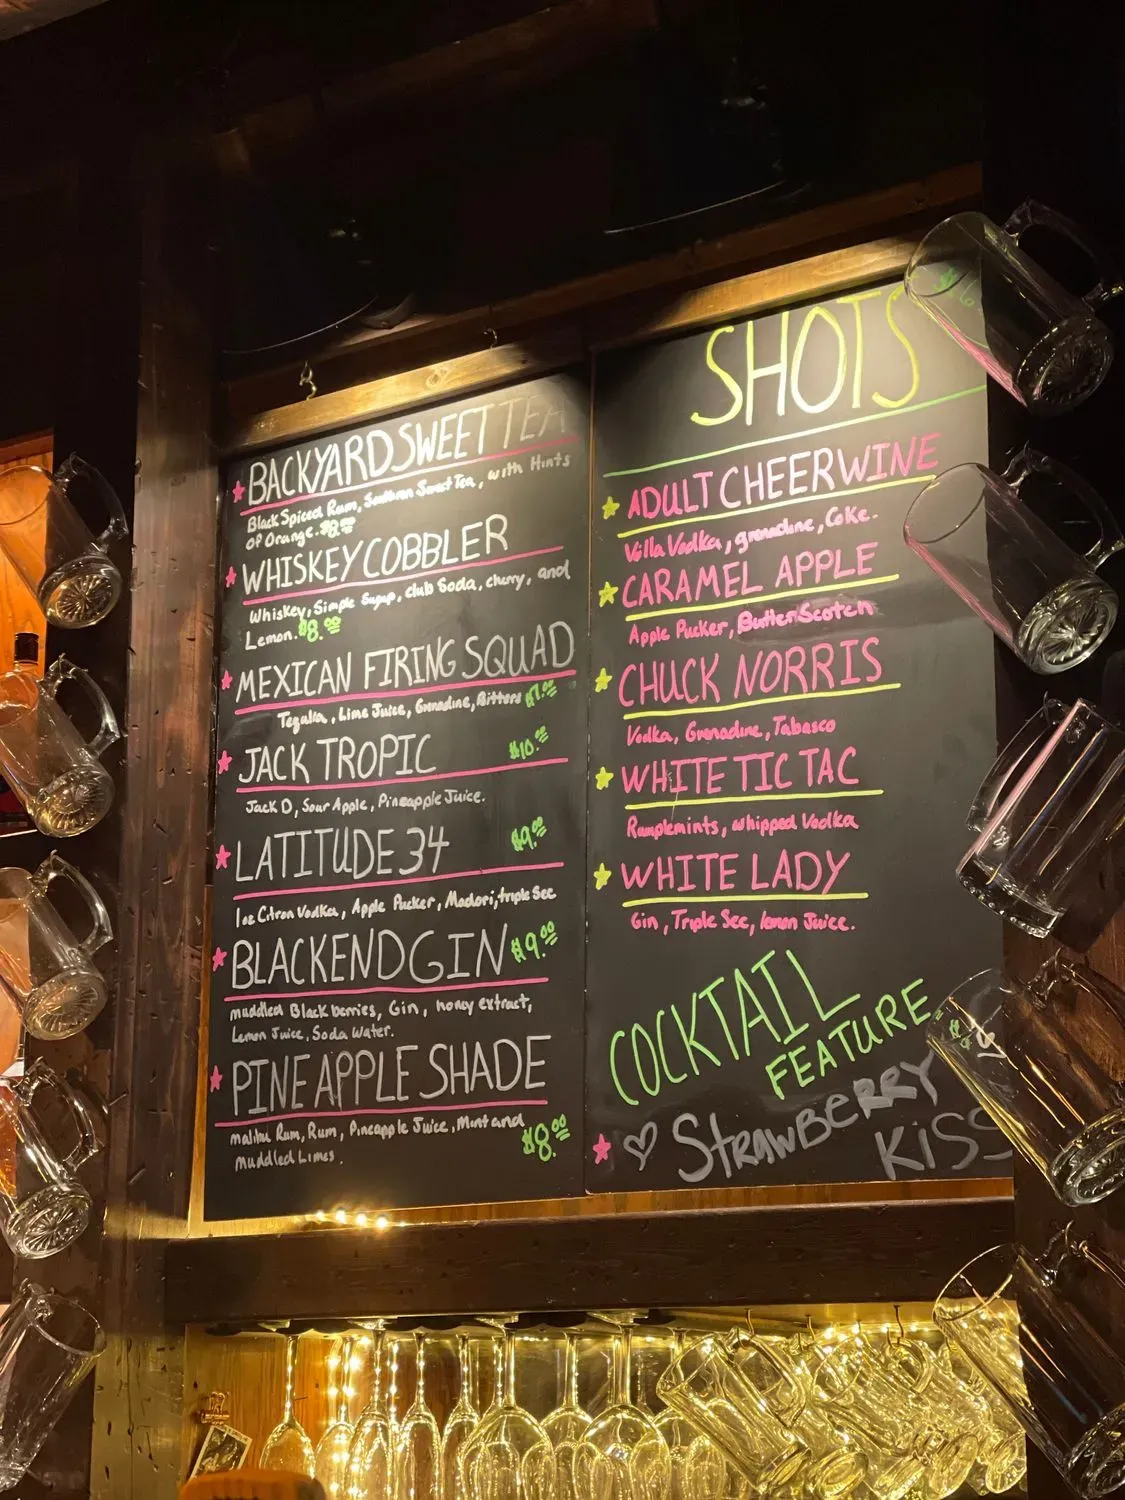 BACKYARD SWEET TEA
Black Spiced Rum, Southern Sweet Tea, with Hints
of Orange. $8.00
WHISKEY COBBLER
Whiskey, Simple Syrup, club Soda, cherry, and
Lemon. $8.00
MEXICAN FIRING SQUAD
Tequlia, Lime Juice, Grenadine, Bitters $7.00
JACK TROPIC $10.00
Jack D, Sour Apple, Pineapple Juice.
LATITUDE 34 $9.00
1oz Citron Vodka, Apple Pucker, Madori, triple Sec
BLACKEND GIN $9.00
muddled Blackberries, Gin, honey extract,
Lemon Juice, Soda Water.
PINEAPPLE SHADE
malibu Rum, Rum, Pineapple Juice, Mint and $8.00
Muddled Limes.
SHOTS $6
ADULT CHEERWINE
Villa Vodka, grenadine, Coke.
CARAMEL APPLE
Apple Pucker, ButterScotch
CHUCK NORRIS
Vodka, Grenadine, Tabasco
WHITE TIC TAC
Rumplemints, whipped Vodka
WHITE LADY
Gin, Triple Sec, lemon Juice.
COCKTAIL
FEATURE
STRAWBERRY
KISS